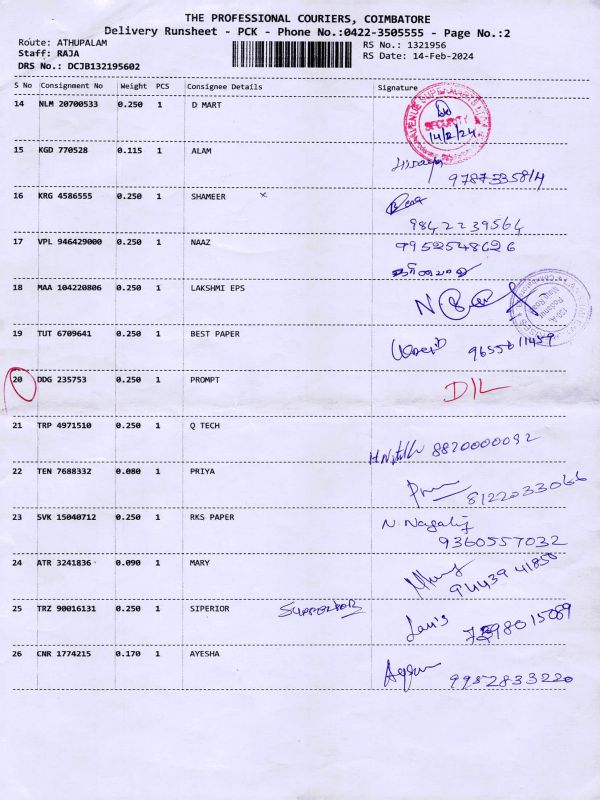 THE PROFESSIONAL COURIERS, COIMBATORE
Delivery Runsheet - PCK - Phone No.:0422-3505555 - Page No.:2
Route: ATHUPALAM RS No.: 1321956
Staff: RAJA RS Date: 14-Feb-2024
DRS No.: DCJB132195602
S No Consignment No Weight PCS Consignee Details Signature
14 NLM 20700533 0.250 1 D MART
SECURITY
14/2/24
15 KGD 770528 0.115 1 ALAM
16 KRG 4586555 0.250 1 SHAMEER x
9842239564
17 VPL 946429000 0.250 1 NAAZ 7952548626
18 MAA 104220806 0.250 1 LAKSHMI EPS
19 TUT 6709641 0.250 1 BEST PAPER
20 DDG 235753 0.250 1 PROMPT D/L
21 TRP 4971510 0.250 1 Q TECH
8820000092
22 TEN 7688332 0.080 1 PRIYA
8122033066
23 SVK 15040712 0.250 1 RKS PAPER N. Nagaraj
9360557032
24 ATR 3241836 0.090 1 MARY
94439 41850
25 TRZ 90016131 0.250 1 SIPERIOR
26 CNR 1774215 0.170 1 AYESHA
9952833220